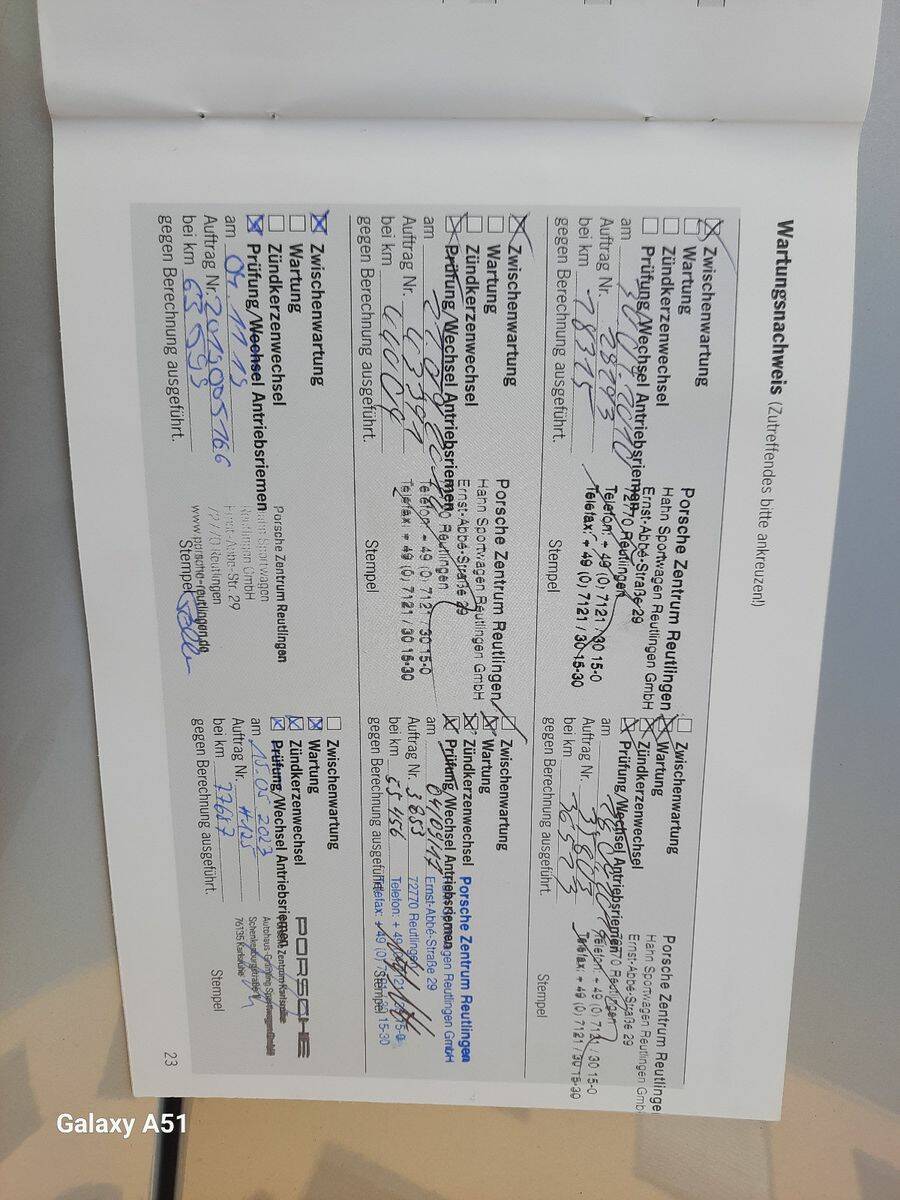 Wartungsnachweis (Zutreffendes bitte ankreuzen!)
Zwischenwartung
Wartung
Zündkerzenwechsel
Prüfung/Wechsel Antriebsriemen
am
Auftrag Nr. 28293
bei km 18315
gegen Berechnung ausgeführt.
Porsche Zentrum Reutlingen
Hahn Sportwagen Reutlingen GmbH
Ernst-Abbé-Straße 29
72770 Reutlingen
Telefon: + 49 (0) 7121 / 30 15-0
Telefax: + 49 (0) 7121 / 30 15-30
Stempel
Zwischenwartung
Wartung
Zündkerzenwechsel
Prüfung/Wechsel Antriebsriemen
am
Auftrag Nr. 31803
bei km 36573
gegen Berechnung ausgeführt.
Porsche Zentrum Reutlinge
Hahn Sportwagen Reutlingen Gmb
Ernst-Abbé-Straße 29
72770 Reutlingen
Telefon: + 49 (0) 7121 / 30 15-0
Telefax: + 49 (0) 7121 / 30 15-30
Stempel
Zwischenwartung
Wartung
Zündkerzenwechsel
Prüfung/Wechsel Antriebsriemen
am
Auftrag Nr.
bei km
gegen Berechnung ausgeführt.
Porsche Zentrum Reutlingen
Hahn Sportwagen Reutlingen GmbH
Ernst-Abbé-Straße 29
72770 Reutlingen
Telefon: + 49 (0) 7121 / 30 15-0
Telefax: + 49 (0) 7121 / 30 15-30
Stempel
Zwischenwartung
Wartung
Zündkerzenwechsel
Prüfung/Wechsel Antriebsriemen
am 04/09/17
Auftrag Nr. 3853
bei km 55456
gegen Berechnung ausgeführt.
Porsche Zentrum Reutlingen
Hahn Sportwagen Reutlingen GmbH
Ernst-Abbé-Straße 29
72770 Reutlingen
Telefon: + 49 (0) 7121 / 30 15-0
Telefax: + 49 (0) 7121 / 30 15-30
Stempel
Zwischenwartung
Wartung
Zündkerzenwechsel
Prüfung/Wechsel Antriebsriemen
am 04.11.19
Auftrag Nr. 2019005166
bei km 63595
gegen Berechnung ausgeführt.
Porsche Zentrum Reutlingen
Hahn Sportwagen
Reutlingen GmbH
Ernst-Abbe-Str. 29
72770 Reutlingen
www.porsche-reutlingen.de
Stempel
Zwischenwartung
Wartung
Zündkerzenwechsel
Prüfung/Wechsel Antriebsriemen
am 15.05.2023
Auftrag Nr. #125
bei km 77687
gegen Berechnung ausgeführt.
PORSCHE
Porsche Zentrum Karlsruhe
76135 Karlsruhe
Stempel
23
Galaxy A51